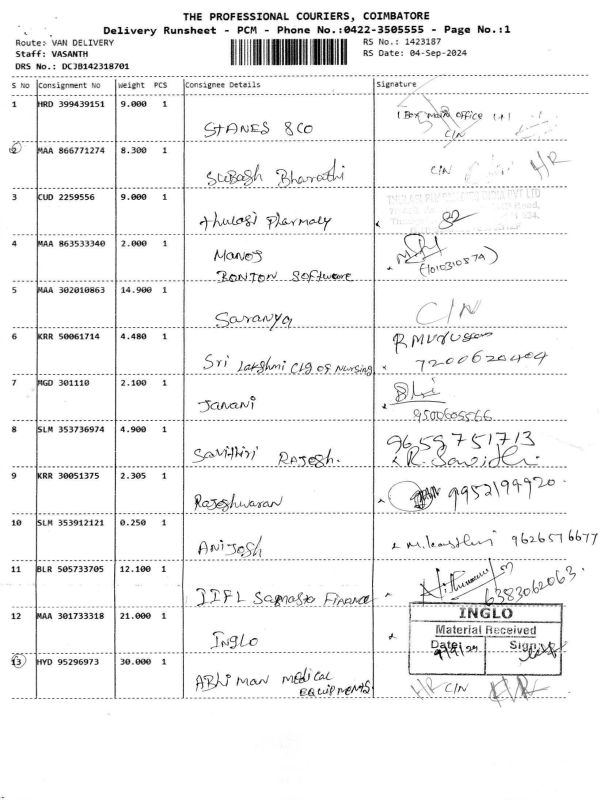 THE PROFESSIONAL COURIERS, COIMBATORE
Delivery Runsheet - PCM - Phone No.:0422-3505555 - Page No.:1
Route: VAN DELIVERY
RS No.: 1423187
Staff: VASANTH
RS Date: 04-Sep-2024
DRS No.: DCJB142318701
S No Consignment No Weight PCS Consignee Details Signature
1 HRD 399439151 9.000 1
STANES & CO
1 Box main office
C/N
2 MAA 866771274 8.300 1
Subash Bharathi
C/N HR
3 CUD 2259556 9.000 1
thulasi pharmacy
4 MAA 863533340 2.000 1
Manoj
BONTON Software
5 MAA 302010863 14.900 1
Saranya
C/N
6 KRR 50061714 4.480 1
Sri Lakshmi Clg of Nursing
7200620404
7 MGD 301110 2.100 1
Janani
9500605566
8 SLM 353736974 4.900 1
Savithiri RAJESH.
9659751713
R. Savidhi
9 KRR 30051375 2.305 1
Rajeshwaran
9952194920.
10 SLM 353912121 0.250 1
ANIJOSH
9626576677
11 BLR 505733705 12.100 1
IIFL Samasta FINANCE
6383062063.
12 MAA 301733318 21.000 1
INGLO
INGLO
Material Received
Date: Sign:
9/9/24
13 HYD 95296973 30.000 1
ABHIMAN MEDICAL
EQUIPMENTS.
HR C/N